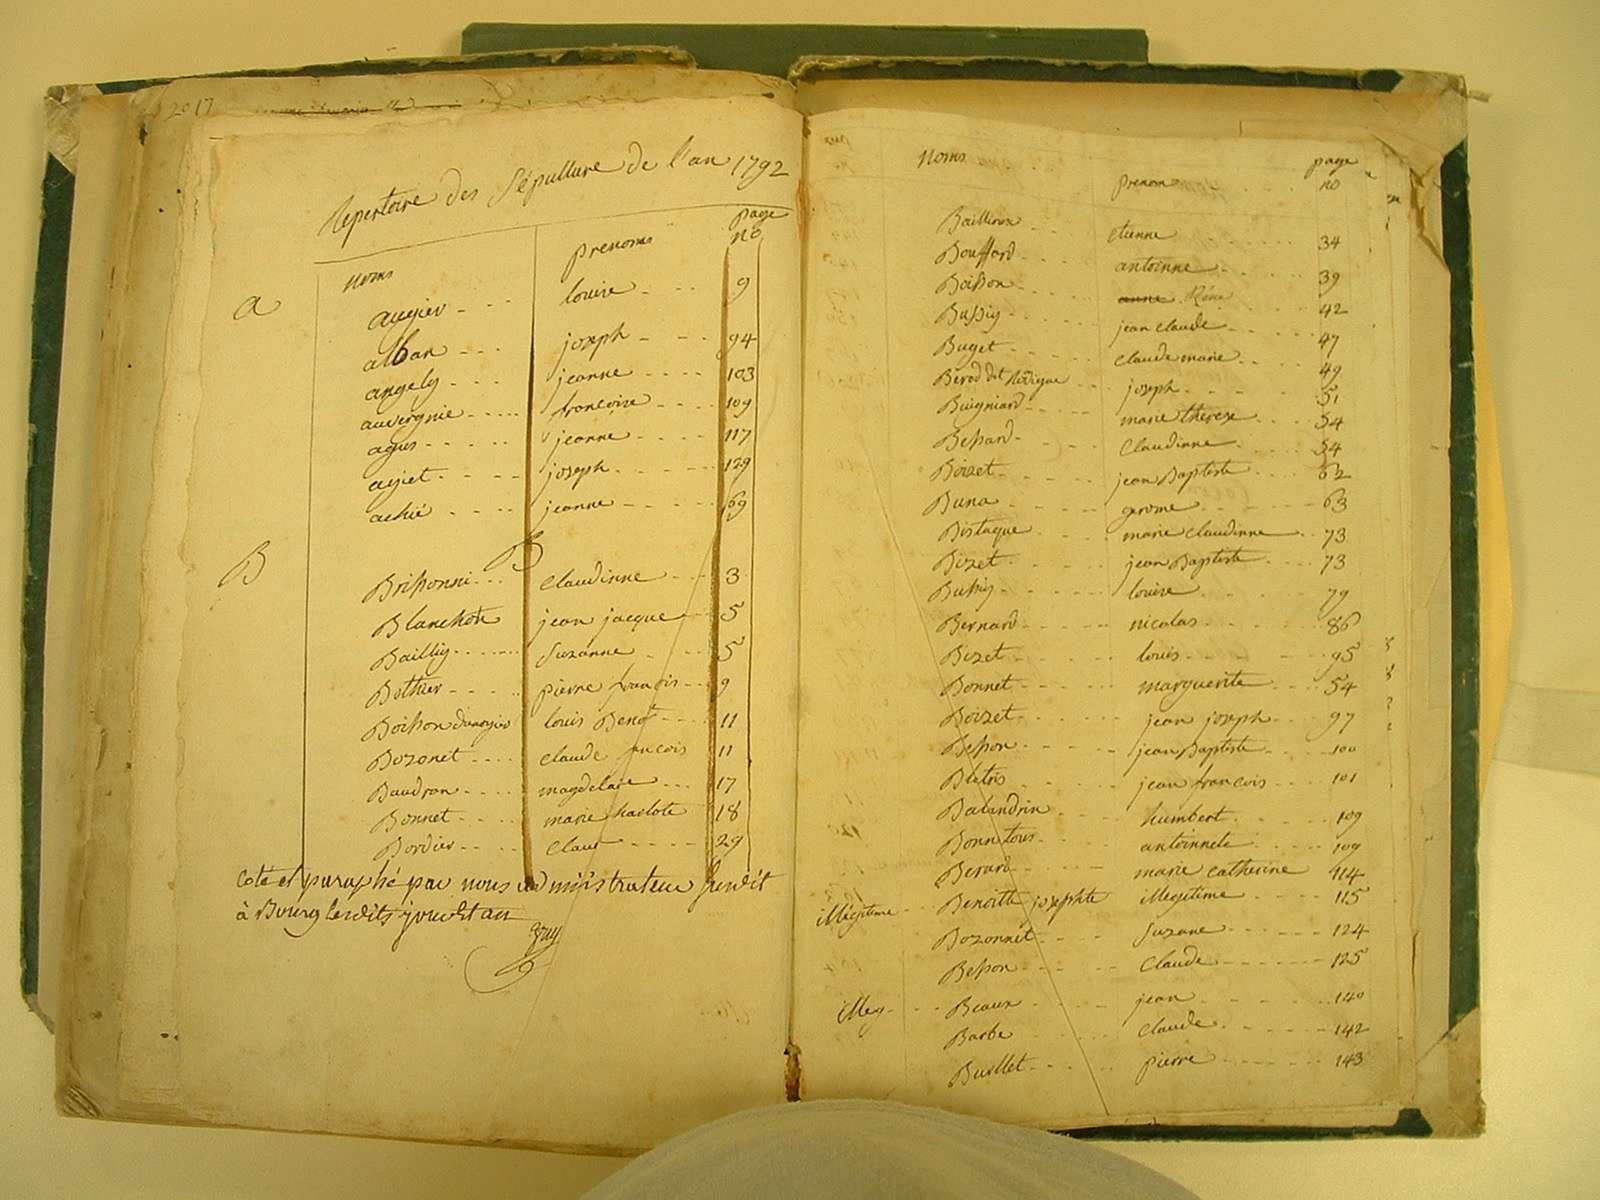 2017
Repertoire des Sépulture de l'an 1792
noms prenoms page no
a
augier louise 9
alban joseph 94
angely jeanne 103
auvergnie francoise 109
agus jeanne 117
agiet joseph 129
achié jeanne 69
B
B
Brissonni claudinne 3
Blanchote jean jacque 5
Bailliy Suzanne 5
Bothier pierre francois 9
Boisson louis Benoit 11
Bozonet claude 11
Baudran magdelaine 17
Bonnet marie harlote 18
Bordier claude 29
Coté et paraphé par nous administrateur Susdit
à Bourg lesdits jour et an
noms prenom page no
Baillioux etienne 34
Bouffard antoinne 39
Boisson anne Réné 42
Bussiy jean claude 47
Buget claude marie 49
Berod dit joseph 51
Buigniard marie therese 54
Bessard Claudinne 54
Boizet jean Baptiste 62
Buna gerome 63
Bistaque marie claudinne 73
Bizet jean Baptiste 73
Bussiy louise 79
Bernard nicolas 86
Bizet louis 95
Bonnet marguerite 54
Boizet jean joseph 97
Besson jean Baptiste 100
Bletris jean francois 101
Balandrin humbert 109
Bonnetous antoinnete 109
Berard marie catherine 114
illégitime Benoitte josephte illegitime 115
Bozonnet Suzane 124
Besson Claude 125
illeg Beaux jean 140
Barbe Claude 142
Buellet pierre 143